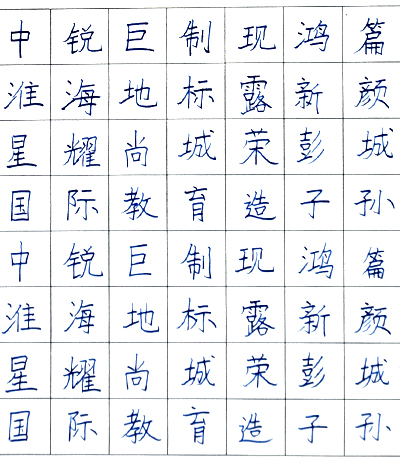 中锐巨制现鸿篇
淮海地标露新颜
星耀尚城荣彭城
国际教育造子孙
中锐巨制现鸿篇
淮海地标露新颜
星耀尚城荣彭城
国际教育造子孙